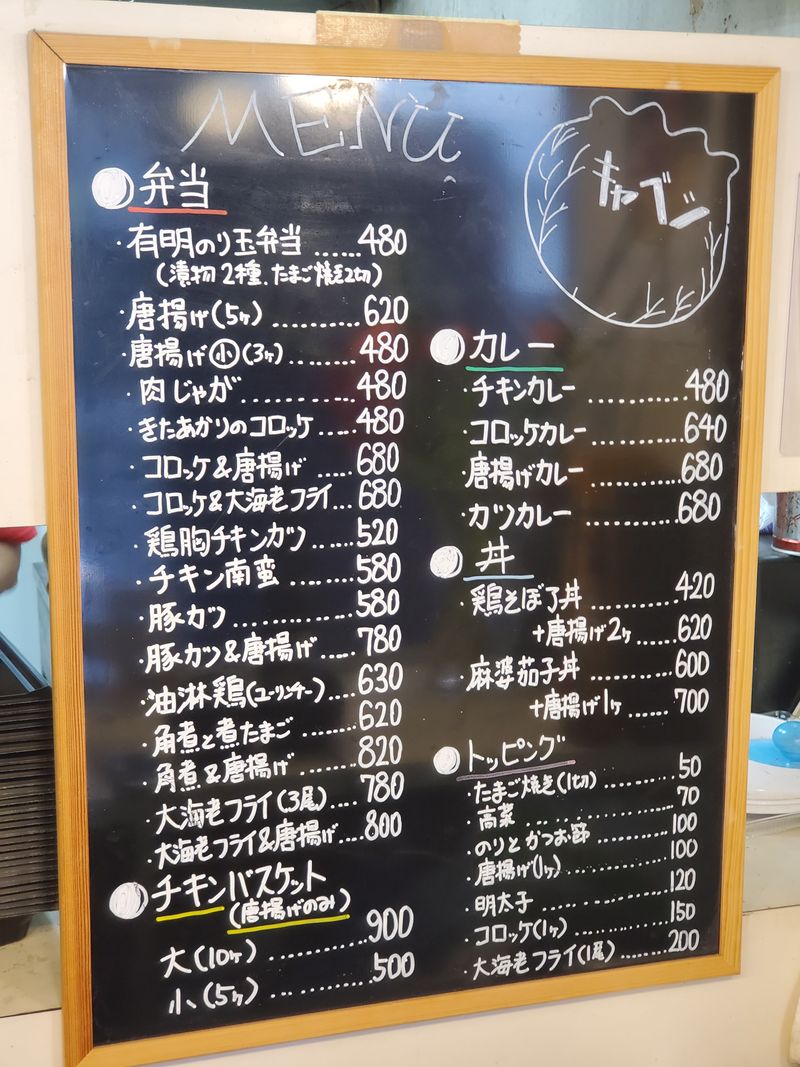 MENU
キャベツ
弁当
・有明のり玉弁当 ......480
(漬物2種、たまご焼き2切)
・唐揚げ(5ヶ) ............620
・唐揚げ㊙小(3ヶ) .........480
・肉じゃが ............480
・きたあかりのコロッケ ....480
・コロッケ&唐揚げ .....680
・コロッケ&大海老フライ...680
・鶏胸チキンカツ ......520
・チキン南蛮 .........580
・豚カツ ..............580
・豚カツ&唐揚げ .....780
・油淋鶏(ユーリンチー)....630
・角煮と煮たまご ......620
・角煮&唐揚げ .......820
・大海老フライ(3尾)....780
・大海老フライ&唐揚げ ....800
チキンバスケット
(唐揚げのみ)
大(10ヶ) ............900
・小(5ヶ) ............500
カレー
・チキンカレー ............480
・コロッケカレー ............640
・唐揚げカレー ............680
・カツカレー ............680
丼
・鶏そぼろ丼 ............420
+唐揚げ2ヶ ......620
・麻婆茄子丼 .........600
+唐揚げ1ヶ ......700
トッピング
・たまご焼き(1切) .........50
・高菜 ............70
・のりとかつお節 .........100
・唐揚げ(1ヶ) ............100
・明太子 ............120
・コロッケ(1ヶ) ............150
・大海老フライ(1尾) ........200